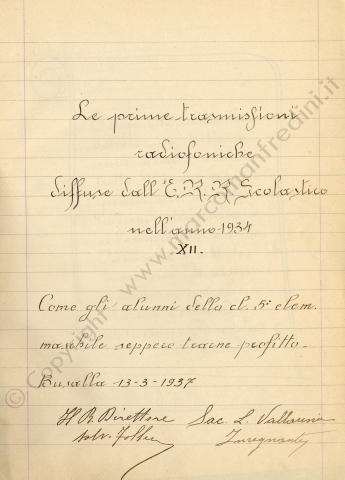 Le prime trasmissioni
radiofoniche
diffuse dall'E.R.R. Scolastico
nell'anno 1934
XII.
Come gli alunni della cl. 5ª elem.
maschile seppero trarne profitto.
Busalla 13-3-1937
Il R. Direttore Sac. L.
Insegnante
© Copyright www.marcomanfredini.it